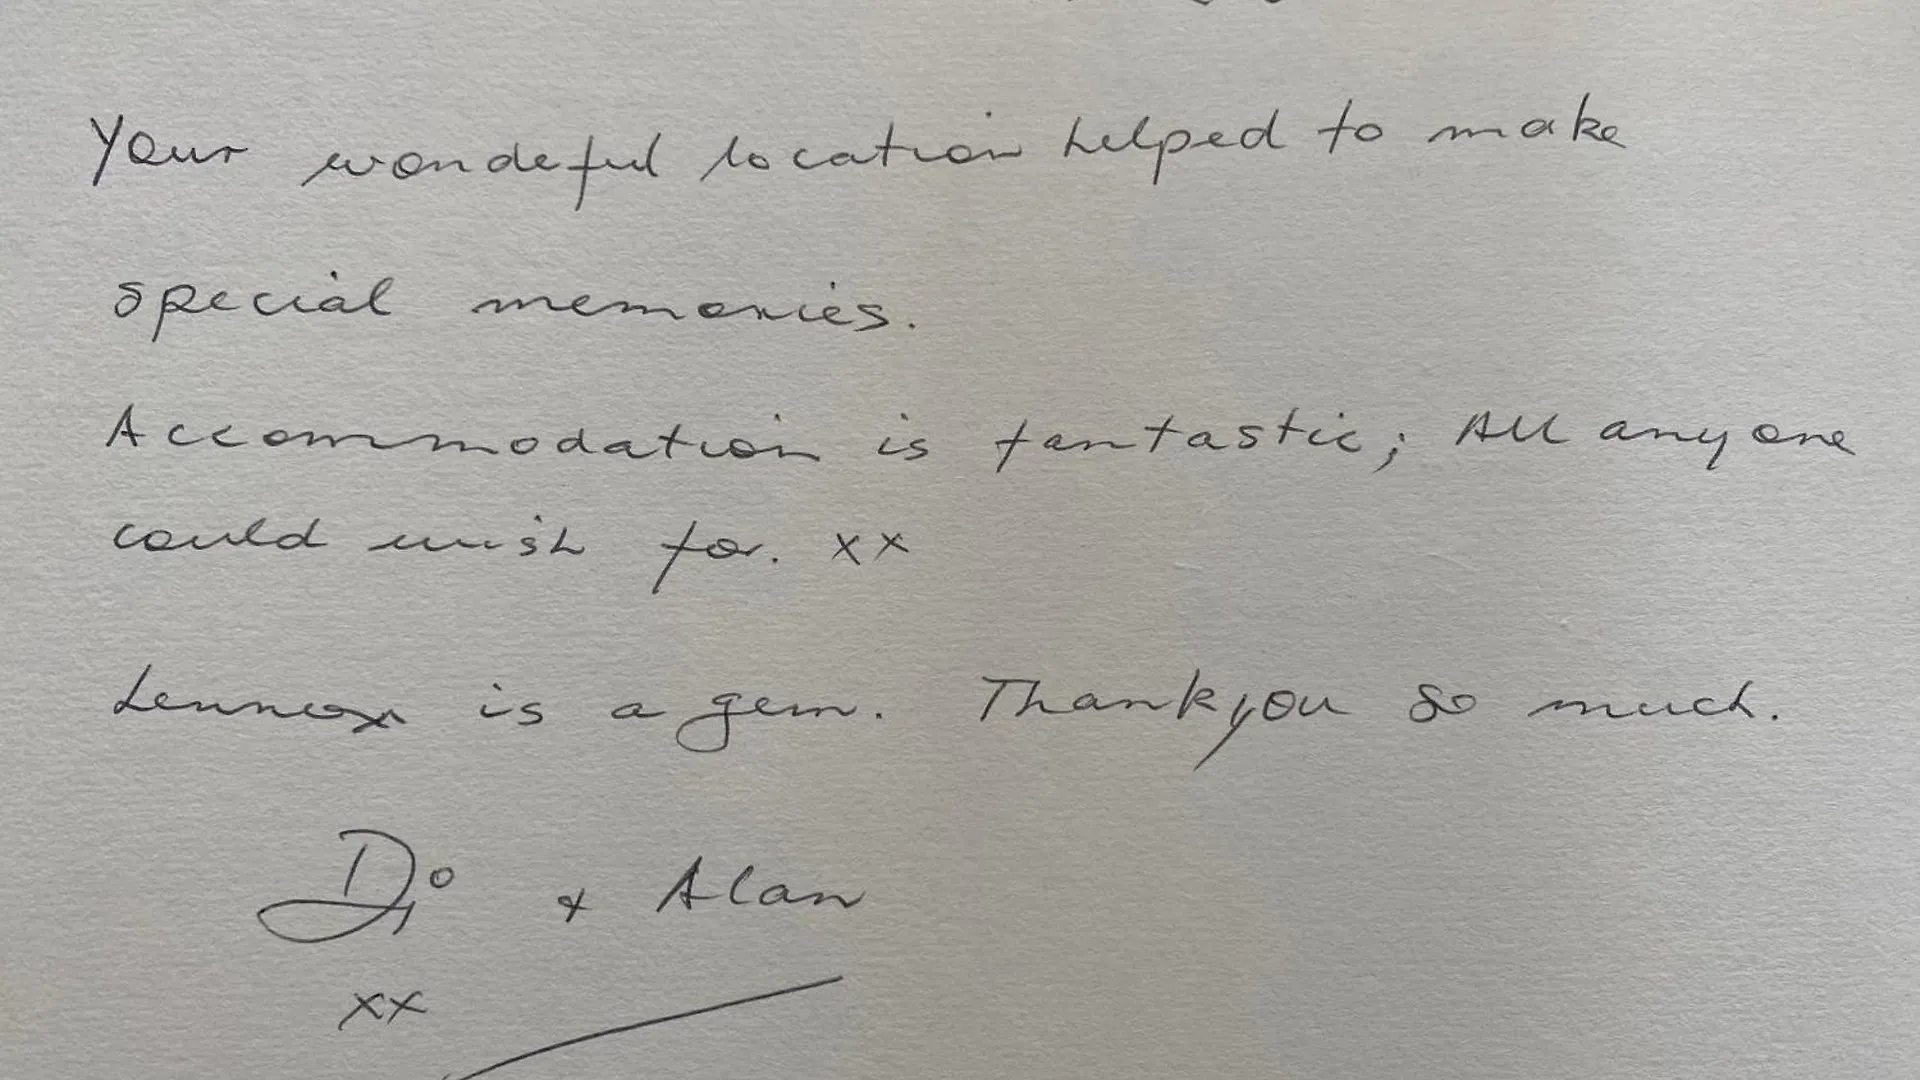 Your wondeful location helped to make
special memories.
Accommodation is fantastic; All anyone
could wish for. xx
Lennox is a gem. Thankyou so much.
Di & Alan
xx